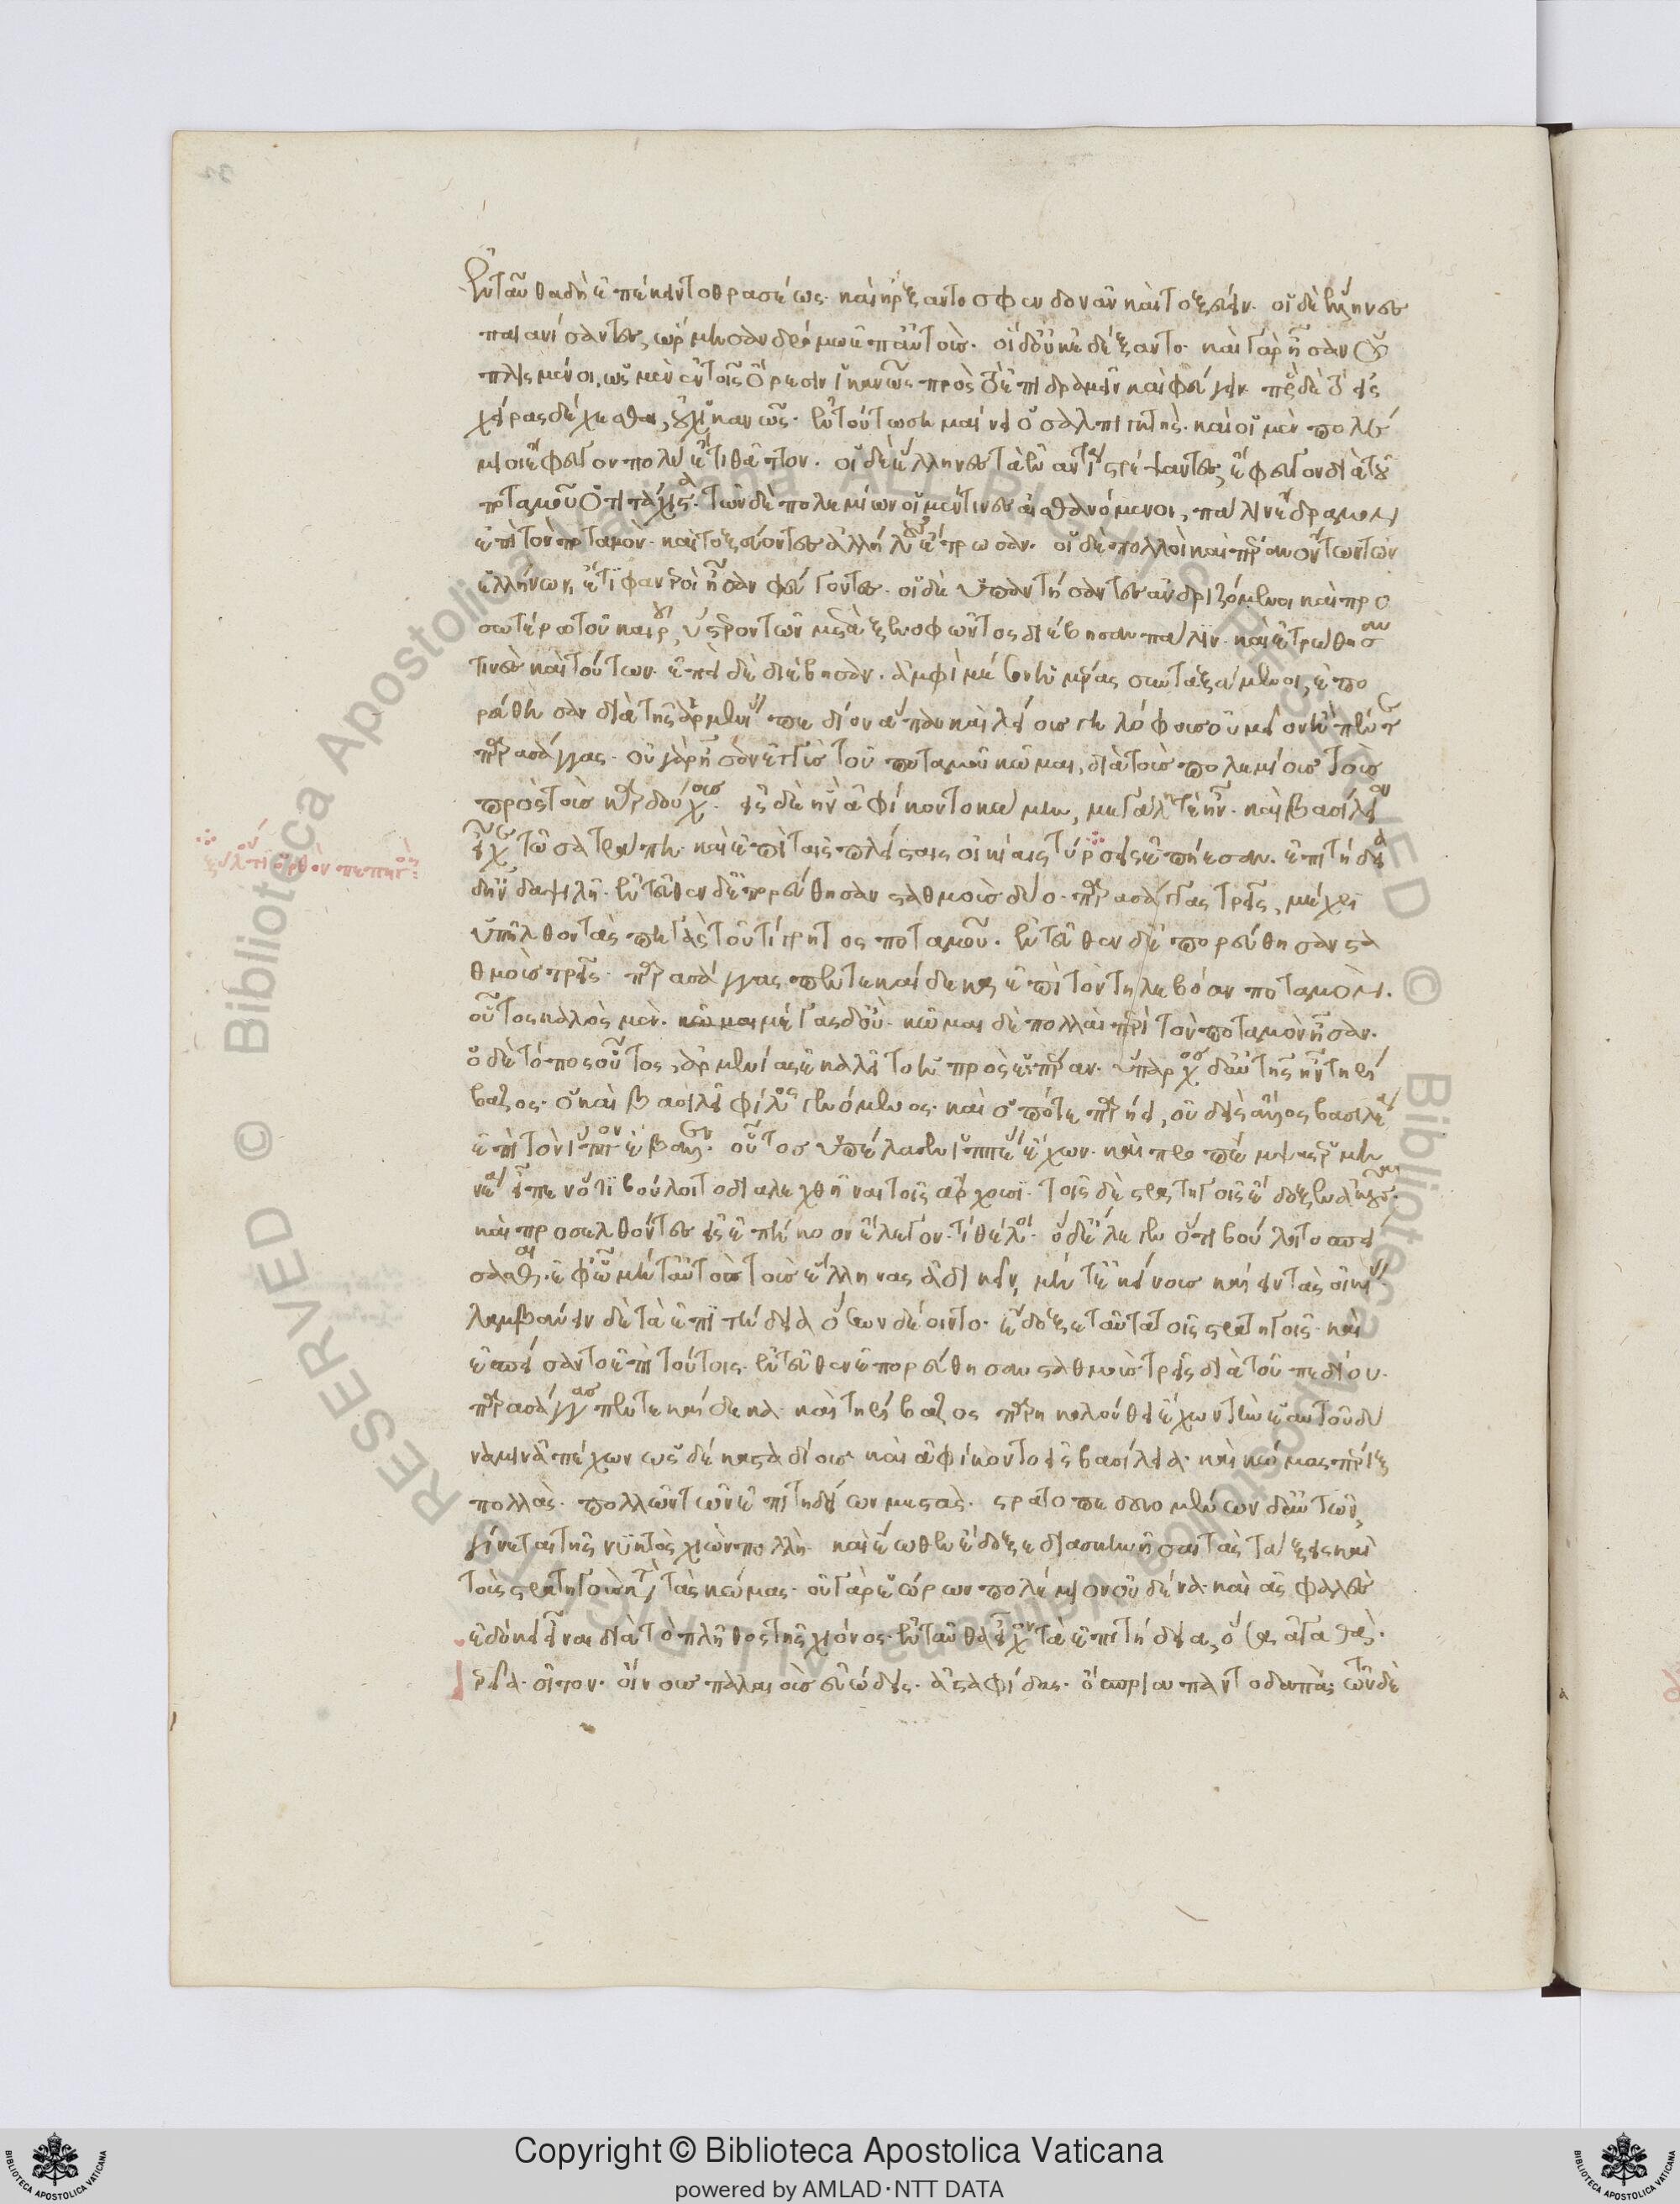 ἐνταῦθα δὴ ἐπέκειντο θρασέως· καὶ ἤρξαντο σφενδονᾶν καὶ τοξεύειν. οἱ δὲ ἕλληνες
παιανίσαντες, ὥρμησαν δρόμω ἐπ' αὐτούς· οἱ δ' οὐκ ἐδέξαντο· καὶ γὰρ ἦσαν ὡ
πλισμένοι, ὡς μὲν ἐν τοῖς ὄρεσιν ἱκανῶς πρὸς τὸ ἐπιδραμεῖν καὶ φεύγειν· πρὸς δὲ τὸ εἰς
χεῖρας δέχεσθαι, οὐχ ἱκανῶς· ἐν τούτω σημαίνει ὁ σαλπιγκτής· καὶ οἱ μὲν πολέ
μιοι ἔφευγον πολὺ ἔτι θᾶττον. οἱ δὲ ἕλληνες τὰ ἐναντία στρέψαντες, ἔφευγον διὰ τοῦ
ποταμοῦ ὅτι τάχιστα. τῶν δὲ πολεμίων οἱ μέν τινες αἰσθανόμενοι, πάλιν ἔδραμον
ἐπὶ τὸν ποταμὸν· καὶ τοξεύοντες ὀλίγους ἔτρωσαν. οἱ δὲ πολλοὶ καὶ πέραν ὄντων τῶν
ἑλλήνων, ἔτι φανεροὶ ἦσαν φεύγοντες. οἱ δὲ ὑπαντήσαντες ἀνδριζόμενοι καὶ προ
σωτέρω τοῦ καιροῦ, ὕστερον τῶν μετὰ ξενοφῶντος διέβησαν πάλιν. καὶ ἐτρώθησαν
τινὲς καὶ τούτων. ἐπεὶ δὲ διέβησαν. ἀμφὶ μέσον ἡμέρας συνταξάμενοι, ἐπο
ρεύθησαν διὰ τῆς ἀρμενίας πεδίον ἅπαν καὶ λείους γηλόφους οὐ μεῖον ἢ πέντε
παρασάγγας. οὐ γὰρ ἦσαν ἐγγὺς τοῦ ποταμοῦ κῶμαι, διὰ τοὺς πολέμους τοὺς
πρὸς τοὺς καρδούχους. εἰς δὲ ἣν ἀφίκοντο κώμην, μεγάλη τὲ ἦν. καὶ βασίλειον
εἶχε τῶ σατράπη· καὶ ἐπὶ ταῖς πλείσταις οἰκίαις τύρσεις ἐπῆεσαν. ἐπιτήδεια
δ' ἦν δαψιλῆ. ἐντεῦθεν δ' ἐπορεύθησαν σταθμοὺς δύο· παρασάγγας τρεῖς, μέχρι
ὑπῆλθον τὰς πηγὰς τοῦ τίγρητος ποταμοῦ. ἐντεῦθεν δ' ἐπορεύθησαν στα
θμοὺς τρεῖς· παρασάγγας πεντεκαίδεκα ἐπὶ τὸν τηλεβόαν ποταμόν.
οὗτος καλὸς μὲν. κῶμαι μέγας δ' οὔ. κῶμαι δὲ πολλαὶ περὶ τὸν ποταμὸν ἦσαν.
ὁ δὲ τόπος οὗτος, ἀρμενία ἐκαλεῖτο ἡ πρὸς ἑσπέραν. ὕπαρχος δ' αὐτῆς ἦν τηρί
βαζος. ὁ καὶ βασιλεῖ φίλος γενόμενος. καὶ ὁπότε παρείη, οὐδεὶς ἄλλος βασιλέα
ἐπὶ τὸν ἵππον ἀνέβαλλεν. οὗτος προσήλασεν ἱππέας ἔχων. καὶ προπέμψας ἑρμη
νέα εἶπεν ὅτι βούλοιτο διαλεχθῆναι τοῖς ἄρχουσι. τοῖς δὲ στρατηγοῖς ἔδοξεν ἀκοῦσαι.
καὶ προσελθόντες εἰς ἐπήκοον ἠρώτων τί θέλοι. ὁ δ' ἔλεγεν ὅτι βούλοιτο σπεί
σασθαι. ἐφ' ὧ μήτ' αὐτὸς τοὺς ἕλληνας ἀδικεῖν, μήτ' ἐκείνους καίειν τὰς οἰκίας.
λαμβάνειν δὲ τὰ ἐπιτήδεια ὅσων δέοιντο. ἔδοξε ταῦτα τοῖς στρατηγοῖς. καὶ
ἐσπείσαντο ἐπὶ τούτοις. ἐντεῦθεν ἐπορεύθησαν σταθμοὺς τρεῖς διὰ τοῦ πεδίου.
παρασάγγας πεντεκαίδεκα. καὶ τηρίβαζος παρηκολούθει ἔχων τὴν ἑαυτοῦ δύ
ναμιν ἀπέχων ὡς δέκα σταδίους. καὶ ἀφίκοντο εἰς βασίλεια. καὶ κώμας πέριξ
πολλὰς. πολλῶν τῶν ἐπιτηδείων μεστὰς. στρατοπεδευομένων δ' αὐτῶν,
γίνεται τῆς νυκτὸς χιὼν πολλή. καὶ ἕωθεν ἔδοξε διασκηνῆσαι τὰς τάξεις καὶ
τοὺς στρατηγοὺς κατὰ τὰς κώμας. οὐ γὰρ ἑώρων πολέμιον οὐδένα. καὶ ἀσφαλὲς
ἐδόκει εἶναι διὰ τὸ πλῆθος τῆς χιόνος. ἐνταῦθα εἶχον τὰ ἐπιτήδεια, ὅσα ἀγαθά.
ἱερεῖα. σῖτον. οἴνους παλαιοὺς εὐώδεις. ἀσταφίδας. ὄσπρια παντοδαπά. τῶν δὲ